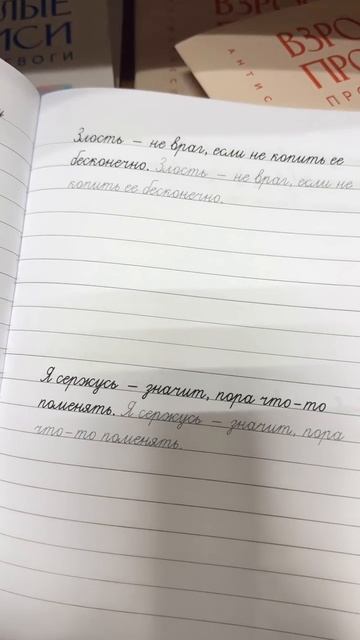 ЛЫЕ
ИСИ
ЕВОГИ
ВЗРО
ПРО
АНТИС
ВЗРО
ПРО
ПРО
Злость – не враг, если не копить ее
бесконечно. Злость – не враг, если не
копить ее бесконечно.
Я сержусь – значит, пора что-то
поменять. Я сержусь – значит, пора
что-то поменять.